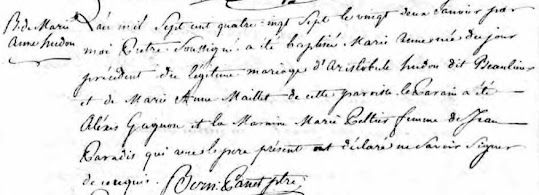 B. de Marie
Anne hudon
L'an mil Sept cent quatre-vingt Sept le vingt deux Janvier par
moi Pretre Soussigné a été baptisée Marie Anne née du jour
précédent du légitime mariage d'Aristobule hudon dit Beaulieu
et de Marie Anne Maillet de cette paroisse. le Parain a été
Aléxis Gagnon et la Maraine Marie Pelltier femme de Jean
Paradis qui avec le pere présent ont déclaré ne Savoir Signer
de ce requis. Bern: Panet ptre